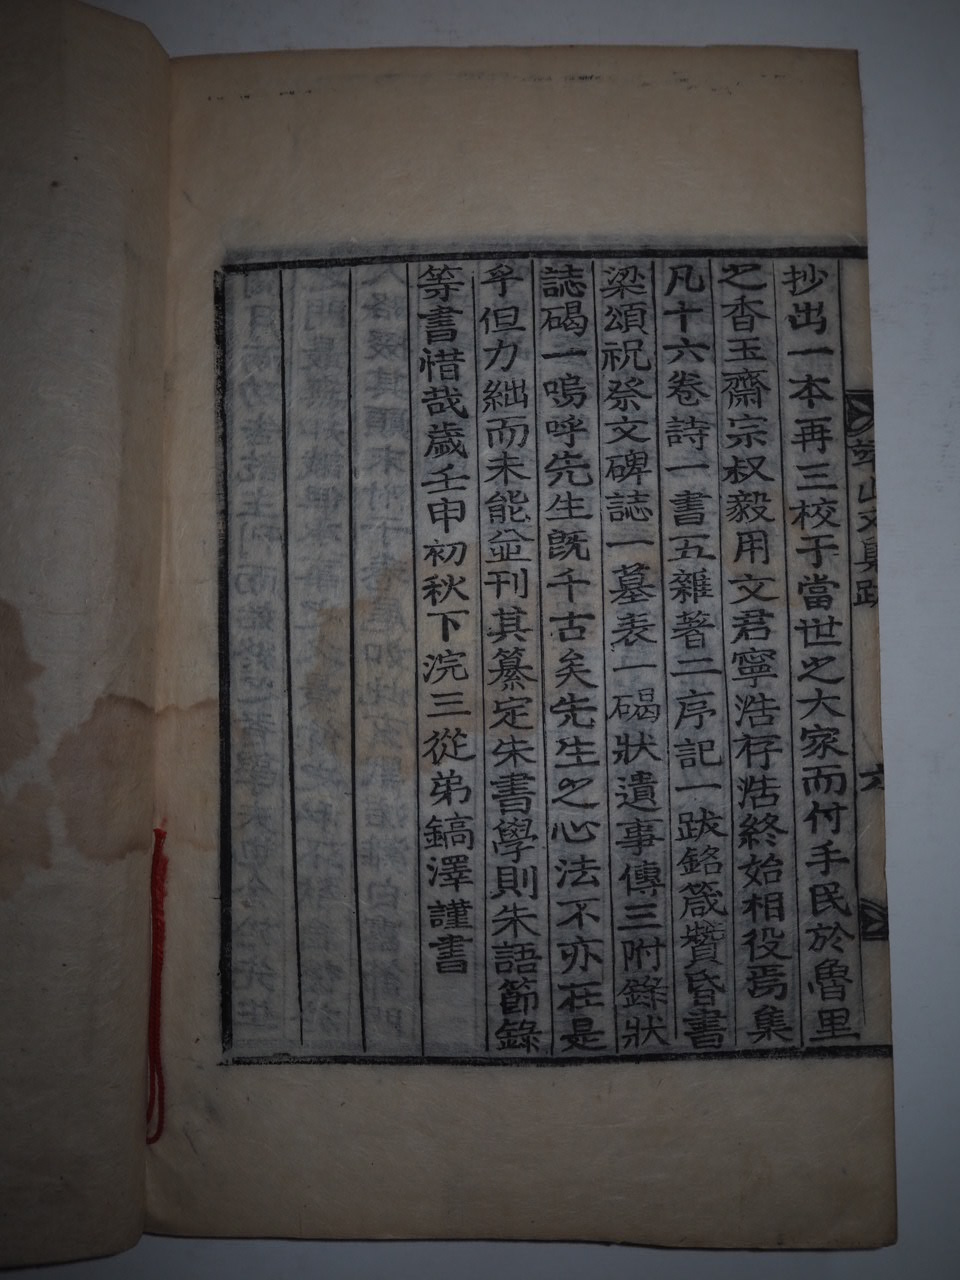 抄出一本再三校于當世之大家而付手民於魯里
之香玉齋宗叔毅用文君寧浩存浩終始相役焉集
凡十六卷詩一書五雜著二序記一跋銘箴贊昏書
梁頌祝祭文碑誌一墓表一碣狀遺事傳三附錄狀
誌碣一嗚呼先生旣千古矣先生之心法不亦在是
乎但力絀而未能並刊其纂定朱書學則朱語節錄
等書惜哉歲壬申初秋下浣三從弟鎬澤謹書